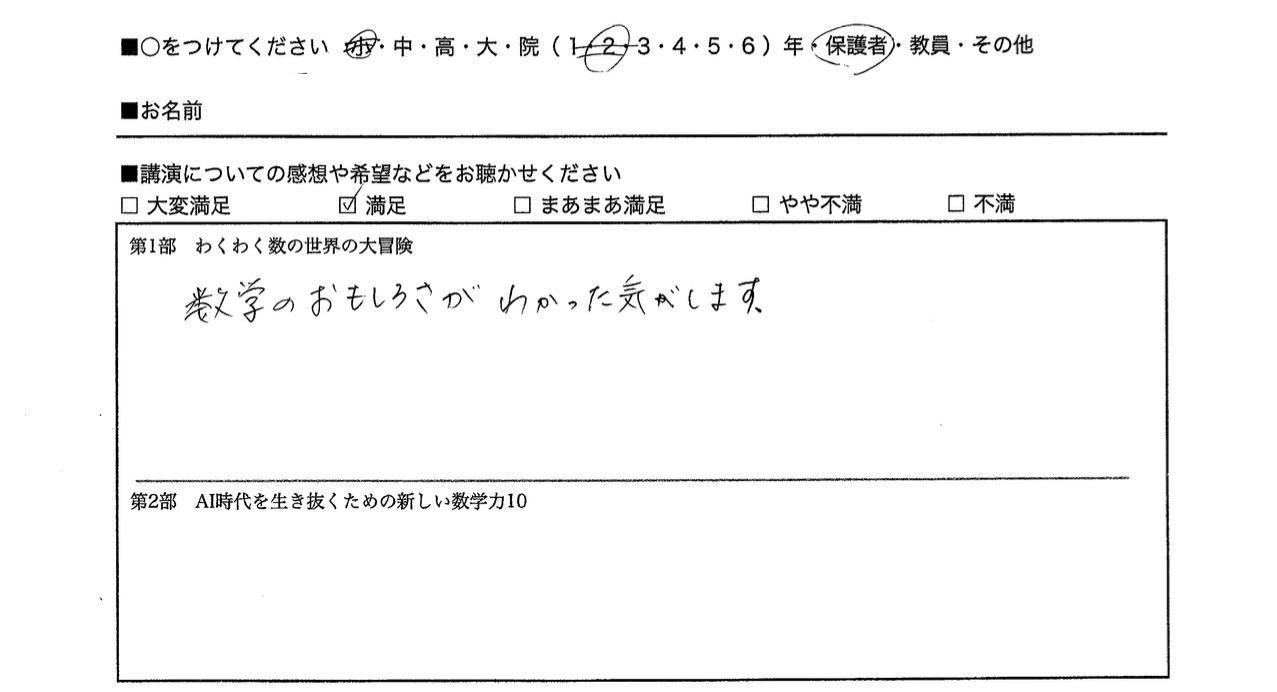 ■○をつけてください 小・中・高・大・院（1・2・3・4・5・6）年・保護者・教員・その他
■お名前
■講演についての感想や希望などをお聴かせください
□ 大変満足 ☑ 満足 □ まあまあ満足 □ やや不満 □ 不満
第1部 わくわく数の世界の大冒険
数学のおもしろさが わかった気がします。
第2部 AI時代を生き抜くための新しい数学力10